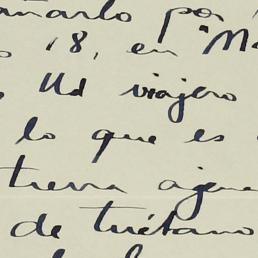 añarlo por
18, en "Ma
Ud viajero
lo que es
tierra ajena
de tuétano